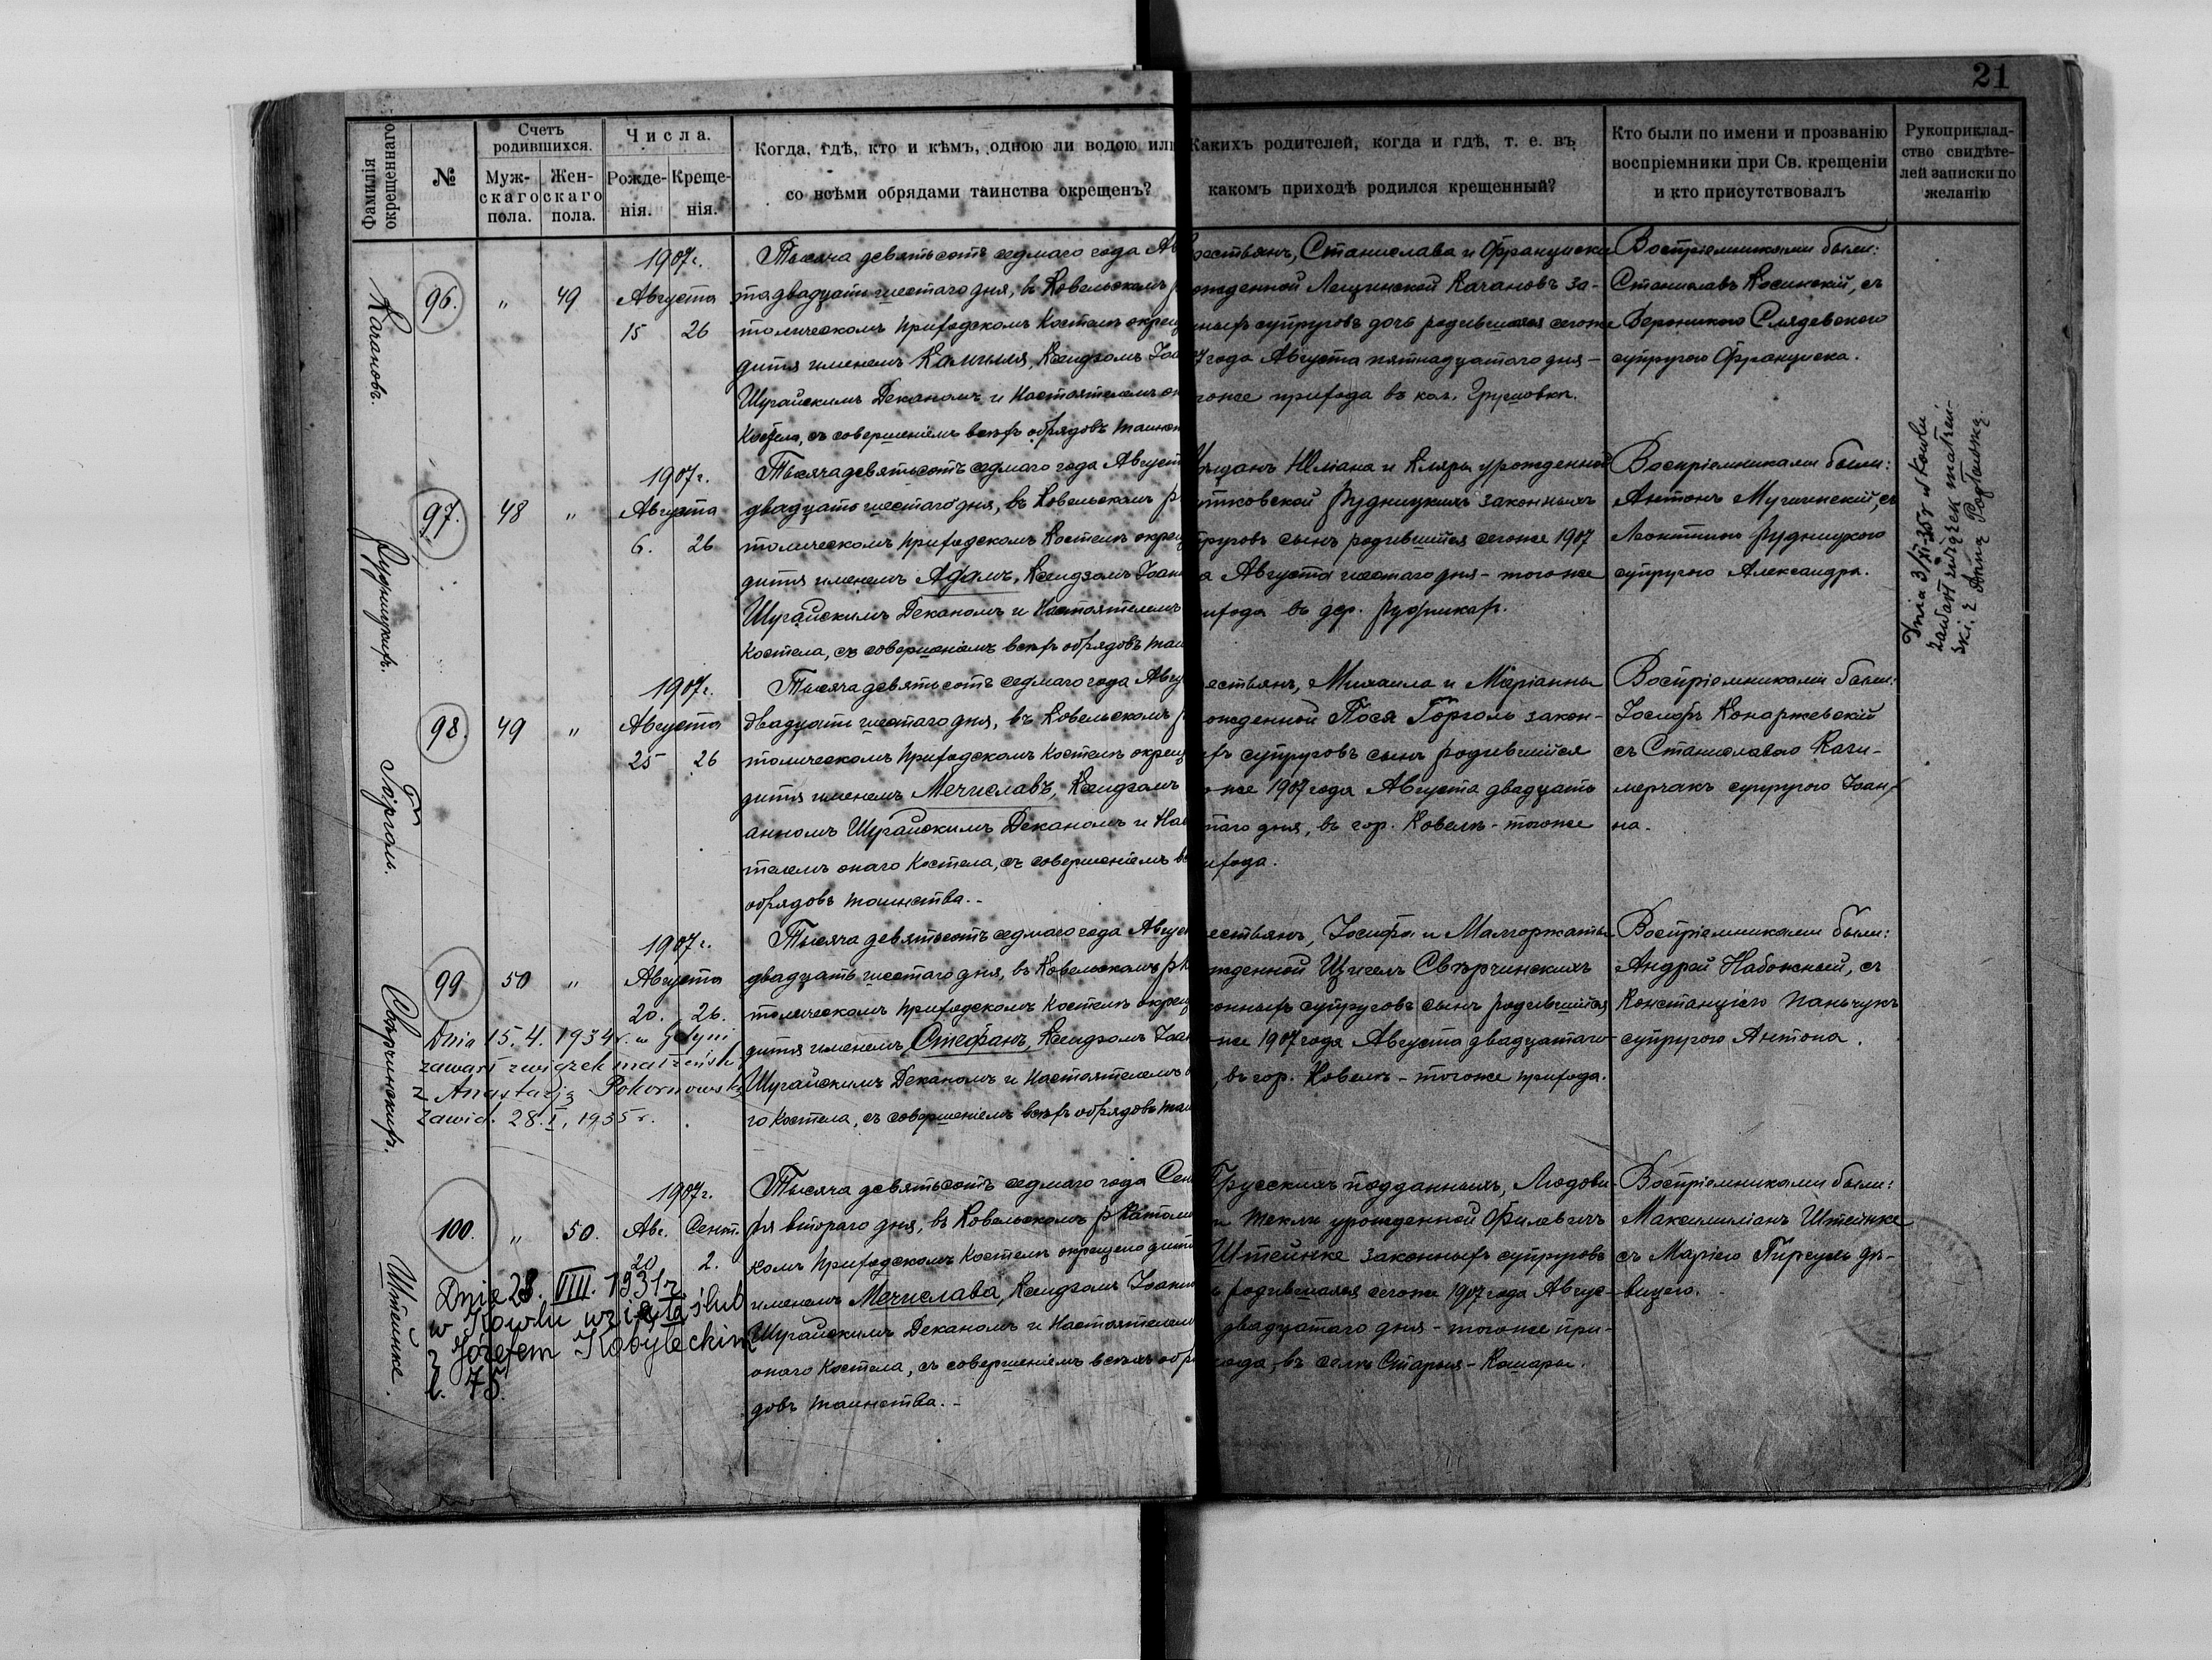 21
Фамилія окрещеннаго.
№
Счетъ родившихся.
Муж-скаго пола.
Жен-скаго пола.
Числа.
Рожде-нія.
Креще-нія.
Когда, гдѣ, кто и кѣмъ, одною ли водою или
со всѣми обрядами таинства окрещенъ?
Какихъ родителей, когда и гдѣ, т. е. въ
какомъ приходѣ родился крещенный?
Кто были по имени и прозванію
воспріемники при Св. крещеніи
и кто присутствовалъ
Рукоприклад-
ство свидѣте-
лей записки по
желанію
Качановъ.
96.
"
49
1907г.
Августа
15 26
Тысяча девятьсотъ седмаго года Ав
та двадцать шестаго дня, въ Ковельскомъ р
толическомъ приходскомъ Костелѣ окрещ
дитя именемъ Камилля, Ксендзомъ Іоа
Шугайскимъ Деканомъ и Настоятелемъ он
Костела, съ совершеніемъ всѣхъ обрядовъ таинст
рестьянъ, Станислава и Франциски
ожденной Лещинской Качановъ за-
ныхъ супруговъ дочь родившаяся сегоже
7 года Августа пятнадцатаго дня -
гоже прихода въ кол. Грушовка.
Воспріемниками были:
Станиславъ Косинскій, съ
Вероникою Слядевскою
супругою Франциска.
Рудницкихъ.
97.
48
"
1907г.
Августа
6. 26
Тысяча девятьсотъ седмаго года Август
двадцать шестаго дня, въ Ковельскомъ р
толическомъ приходскомъ Костелѣ окрещ
дитя именемъ Адамъ, Ксендзомъ Іоан
Шугайскимъ Деканомъ и Настоятелемъ
Костела, съ совершеніемъ всѣхъ обрядовъ таи
ѣщанъ Юліана и Кляры урожденной
тковской Рудницкихъ законныхъ
пруговъ сынъ родившійся сегоже 1907
а Августа шестаго дня - тогоже
ихода въ дер. Рудникахъ.
Воспріемниками были:
Антонъ Мучинскій, съ
Леонтиною Рудницкою
супругою Александра.
Dnia 3/XI-35 r w Kowlu
zawarł związek małżeń-
ski z Anną
Горголь.
98.
49
"
1907г.
Августа
25 26
Тысяча девятьсотъ седмаго года Авгу
двадцать шестаго дня, въ Ковельскомъ р
толическомъ приходскомъ Костелѣ окрещ
дитя именемъ Мечиславъ, Ксендзомъ
анномъ Шугайскимъ Деканомъ и Нас
телемъ онаго Костела, съ совершеніемъ вс
обрядовъ таинства.-
естьянъ, Михаила и Маріанны
ожденной Пося Горголь закон-
хъ супруговъ сынъ родившійся
оже 1907 года Августа двадцать
таго дня, въ гор. Ковелѣ - тогоже
ихода.
Воспріемниками были:
Іосифъ Конаржевскій
съ Станиславою Кази-
мерчакъ супругою Іоан-
на.
Сверчинскихъ.
99
50
"
1907г.
Августа
20. 26.
Dnia 15. 4. 1934 r. w Gdyni
zawarł związek małżeński
z Anastazją Pokornowską
zawid. 28. I. 1935 r.
Тысяча девятьсотъ седмаго года Авгус
двадцать шестаго дня, въ Ковельскомъ рк
толическомъ приходскомъ Костелѣ окрещ
дитя именемъ Стефанъ, Ксендзомъ Іоан
Шугайскимъ Деканомъ и Настоятелемъ о
го Костела, съ совершеніемъ всѣхъ обрядовъ таи
естьянъ, Іосифа и Малгоржаты
жденной Щигелъ Сверчинскихъ
онныхъ супруговъ сынъ родившійся
же 1907 года Августа двадцатаго
, въ гор. Ковелѣ - тогоже прихода.
Воспріемниками были:
Андрей Набожный, съ
Констанціею Паньчукъ
супругою Антона.
Штейнке.
100.
"
50.
1907г.
Авг. Сент.
20 2.
Dnia 28. VIII. 1931 r.
w Kowlu wzięła ślub
z Józefem Kobyłeckim
l. 75.
Тысяча девятьсотъ седмаго года Сен
ря втораго дня, въ Ковельскомъ р Католи
комъ приходскомъ Костелѣ окрещено дитя
именемъ Мечислава, Ксендзомъ Іоанн
Шугайскимъ Деканомъ и Настоятелем
онаго Костела, съ совершеніемъ всѣхъ обр
довъ таинства.-
Прусскихъ подданныхъ, Людови
и Текли урожденной Филевичъ
Штейнке законныхъ супруговъ
ь родившаяся сегоже 1907 года Авгус-
двадцатаго дня - тогоже при-
хода, въ селѣ Старыя-Кошары.
Воспріемниками были:
Максимиліанъ Штейнке
съ Маріею Пирсель дѣ-
вицею.